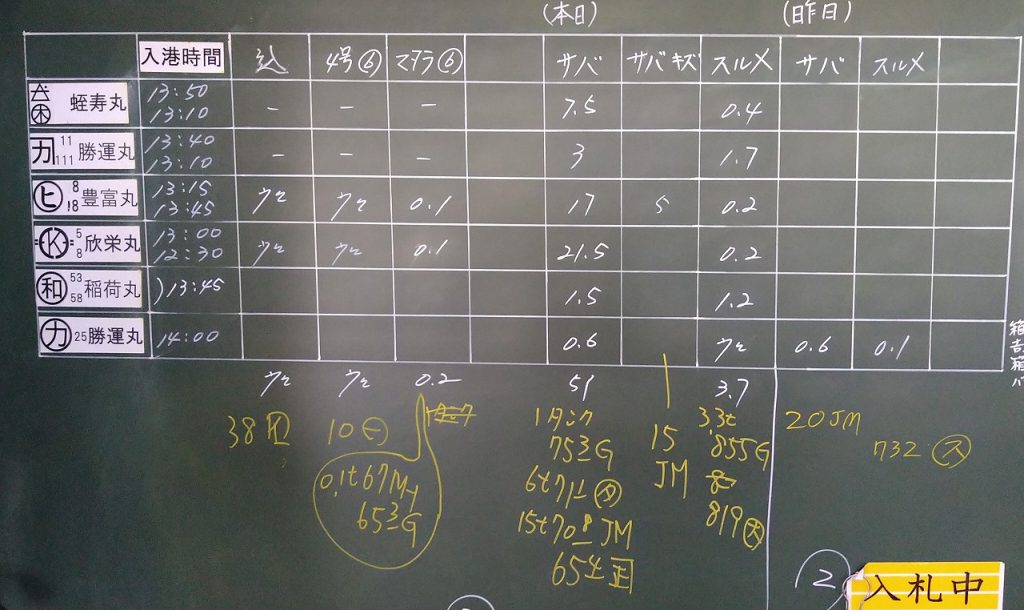 (本日) (昨日)
入港時間 込 4号⑥ マダラ⑥ サバ サバキズ スルメ サバ スルメ
蛭寿丸 13:50 13:10 - - - 7.5 0.4
カ 11 111 勝運丸 13:40 13:10 - - - 3 1.7
ヒ 8 18 豊富丸 13:15 13:45 ウロ ウロ 0.1 17 5 0.2
K 5 8 欣栄丸 13:00 12:30 ウロ ウロ 0.1 21.5 0.2
和 53 58 稲荷丸 )13:45 1.5 1.2
カ 25 勝運丸 14:00 0.6 ウロ 0.6 0.1
ウロ ウロ 0.2 51 3.7
38 10 1タンク 15 3.3t 20JM
753G JM .855G 732 ㋜
0.1t 67My 6t711 819
653G 15t708 JM
654 正
2 入札中